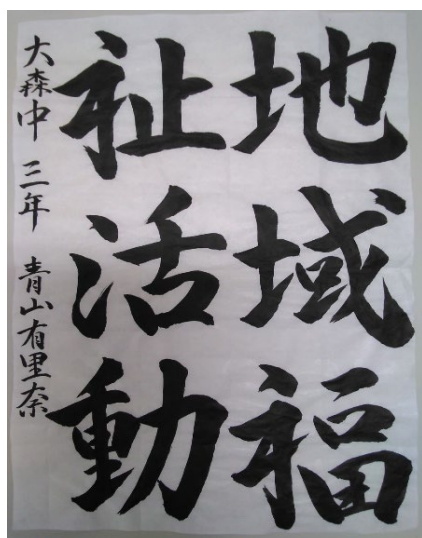 地域福
祉活動
大森中 三年 青山有里奈